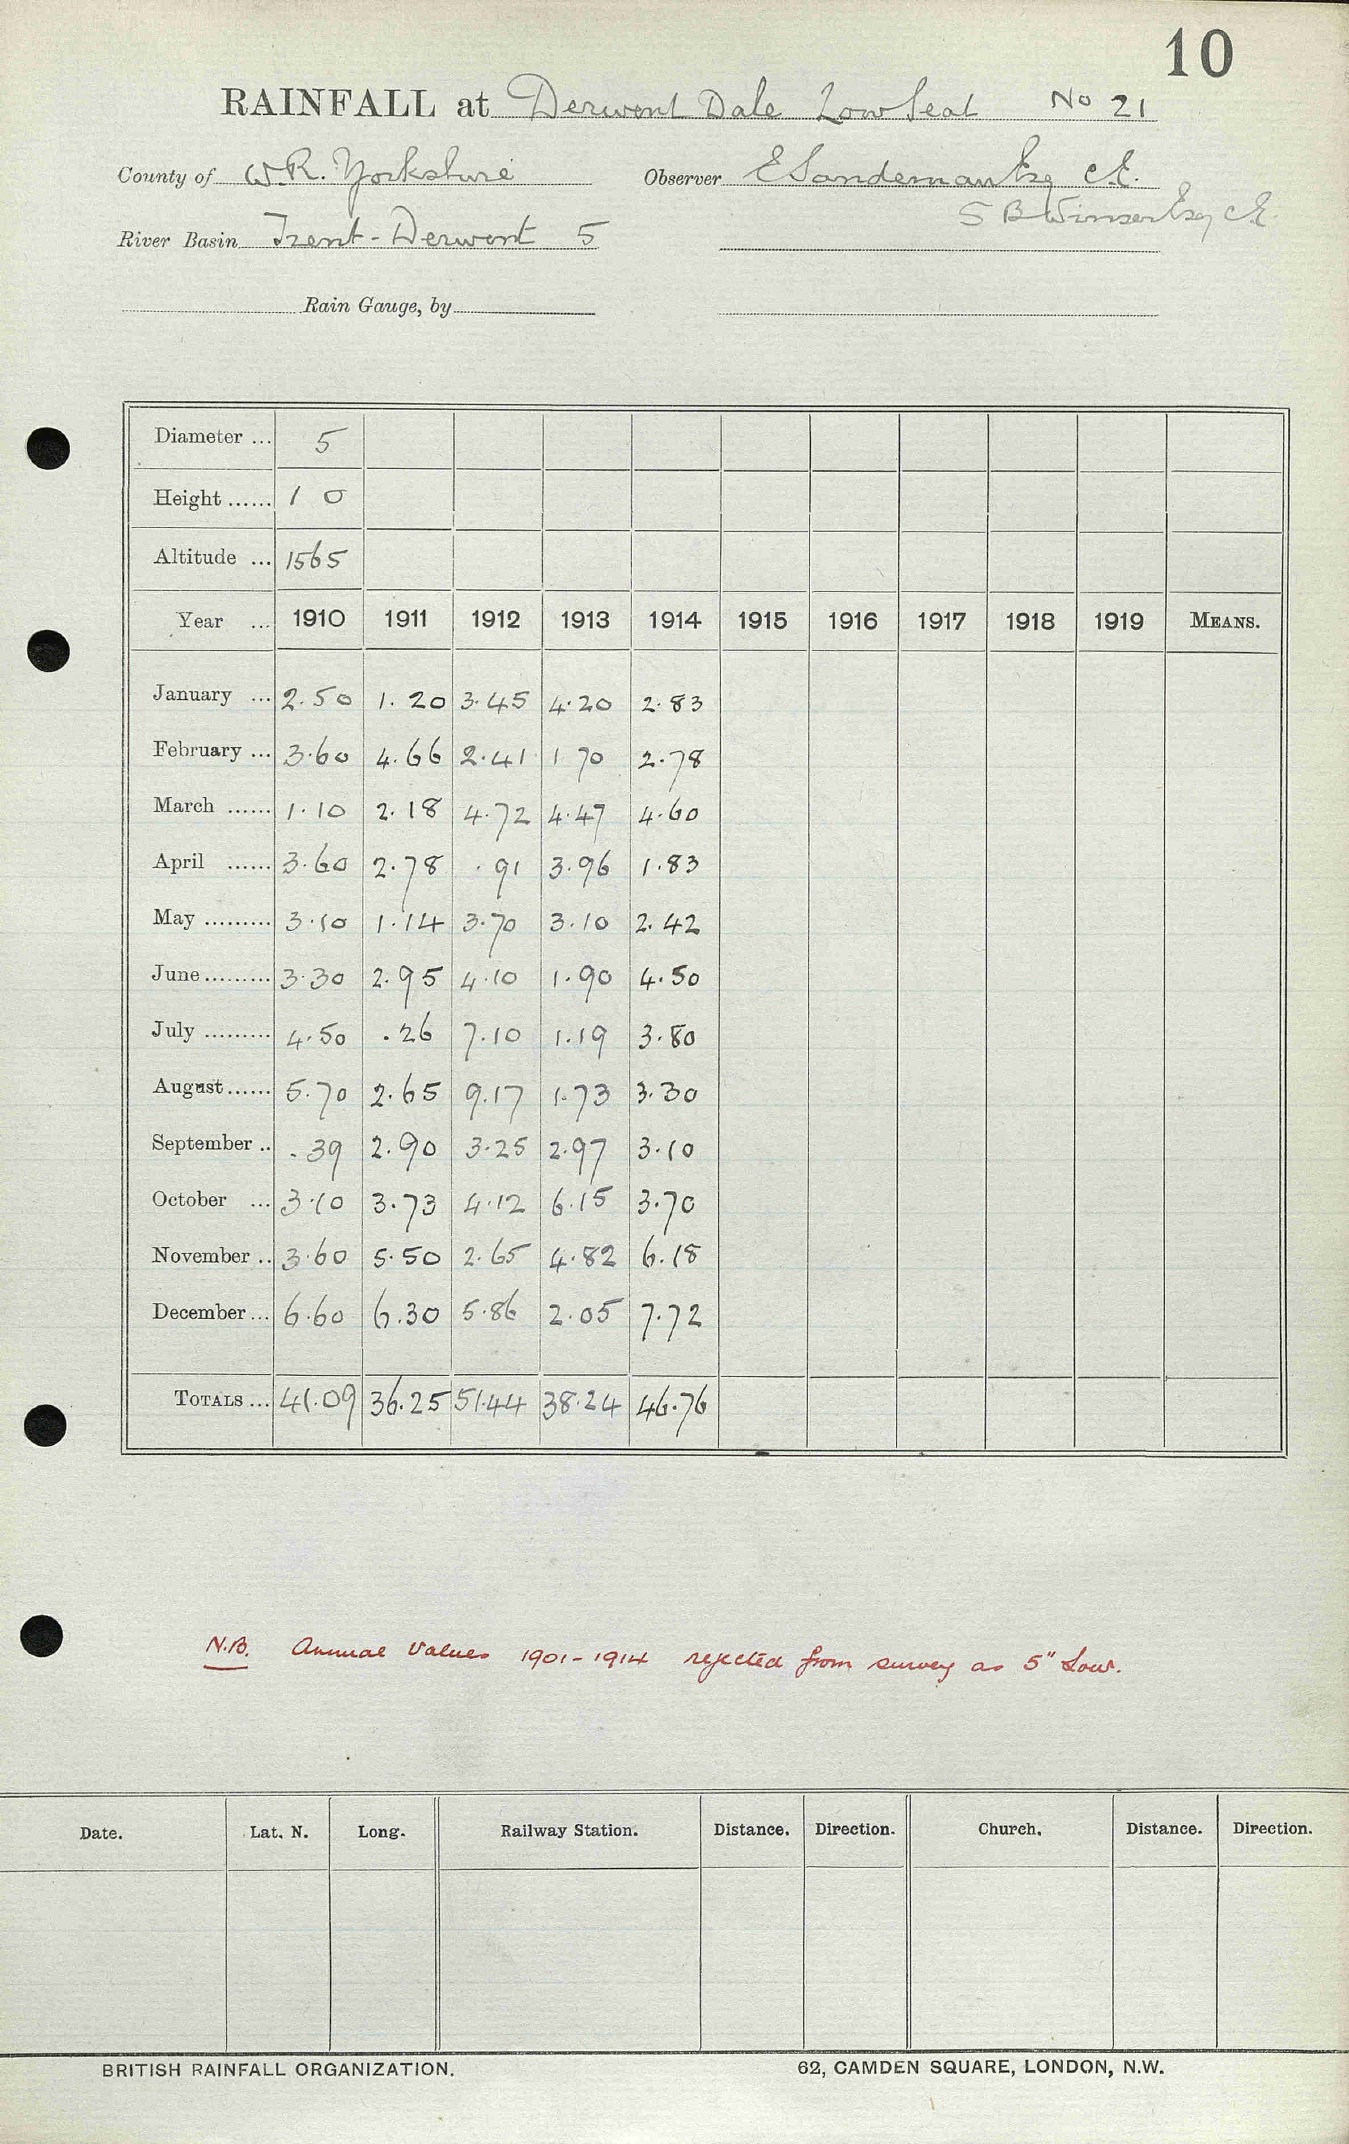 10
RAINFALL at Derwent Dale Low Seat No 21
County of W.R. Yorkshire Observer E Sandeman Esq C.E.
S B Winser Esq C.E.
River Basin Trent - Derwent 5
Rain Gauge, by
Diameter ... 5
Height ...... 1 0
Altitude ... 1565
Year ... 1910 1911 1912 1913 1914 1915 1916 1917 1918 1919 MEANS.
January ... 2.50 1.20 3.45 4.20 2.83
February ... 3.60 4.66 2.41 1 70 2.78
March ...... 1.10 2.18 4.72 4.47 4.60
April ...... 3.60 2.78 .91 3.96 1.83
May ......... 3.10 1.14 3.70 3.10 2.42
June ......... 3.30 2.95 4.10 1.90 4.50
July ......... 4.50 .26 7.10 1.19 3.80
August ...... 5.70 2.65 9.17 1.73 3.30
September .. .39 2.90 3.25 2.97 3.10
October ... 3.10 3.73 4.12 6.15 3.70
November .. 3.60 5.50 2.65 4.82 6.18
December ... 6.60 6.30 5.86 2.05 7.72
TOTALS ... 41.09 36.25 51.44 38.24 46.76
N.B. Annual Values 1901-1914 rejected from survey as 5" Low.
Date. Lat. N. Long. Railway Station. Distance. Direction. Church. Distance. Direction.
BRITISH RAINFALL ORGANIZATION. 62, CAMDEN SQUARE, LONDON, N.W.